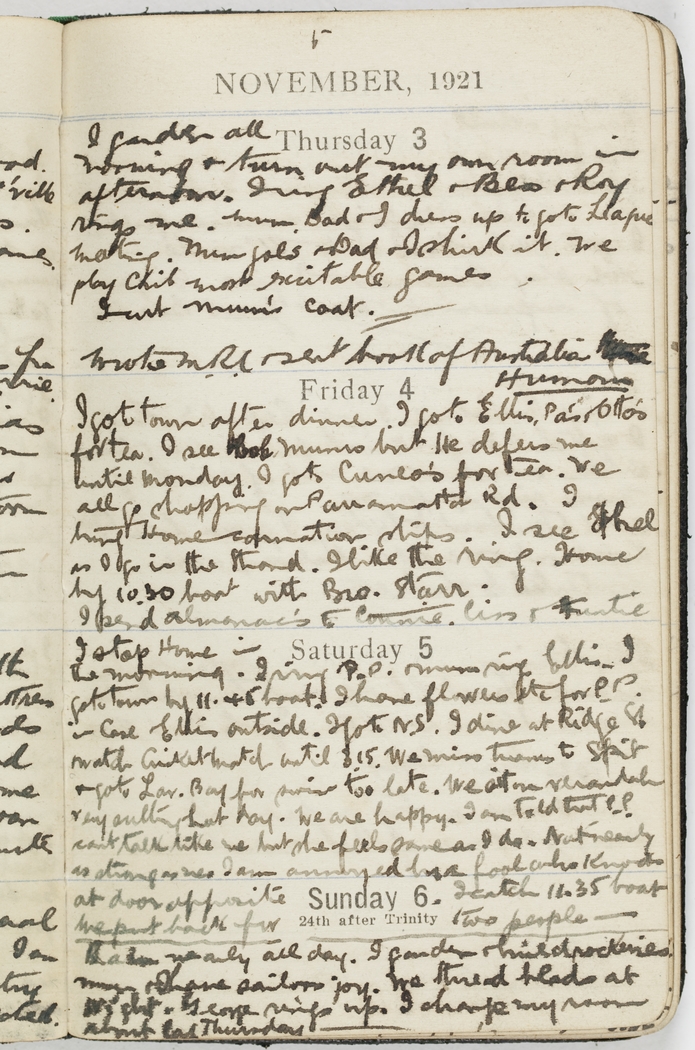 5
NOVEMBER, 1921
I garden all
Thursday 3
morning & turn out my own room in
afternoon. I ring Ethel & Bess & Roy
rings me. Mum, Dad & I dress up to go to League
meeting. Mum goes & Dad & I shirk it. We
play Chit most excitable games.
I cut Mum's coat.
Wrote & sent book of Australia
Humour
Friday 4
I go town after dinner. I go to Ellis, Pa's, Otto's
for tea. I see Bob Munro but He defers me
until Monday. I go to Cuneo's for tea. We
all go shopping on Parramatta Rd. I
bring Home carnation slips. I see Ethel
as I go in the Strand. I like the ring. Home
by 10.30 boat with Bro. Starr.
I send almanac's to Connie, Ciss & Auntie
I stop Home in
Saturday 5
the morning. I ring P.P. & mum ring Ellis. I
go town by 11.45 boat. I have flowers etc for P.P.
in Case Ellis outside. I go to N.S. I dine at Ridge St
& watch Cricket match until 3.15. We miss trams to Spit
& go to Lav. Bay for swim too late. We sit on verandah
very sultry hot day. We are happy. I am told that P.P.
can't talk like me but she feels same as I do. Not nearly
as strong as me I am annoyed by a fool who Knocks
at door opposite
Sunday 6.
I catch 11.35 boat
24th after Trinity
We put back for
two people
Rain nearly all day. I garden & build rockeries.
mum & I have sailors joy. We thread beads at
night. George rings up. I change my room
about last Thursday